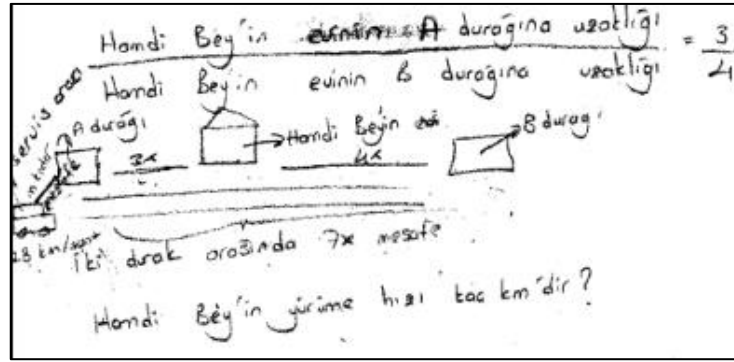 Hamdi Bey'in evinin A durağına uzaklığı = 3/4
Hamdi Beyin evinin B durağına uzaklığı
servis aracı
A durağı
Hamdi Beyin
B durağı
3x
4x
28 km/saat
İki durak arasında 7x mesafe
Hamdi Bey'in yürüme hızı kaç km'dir?